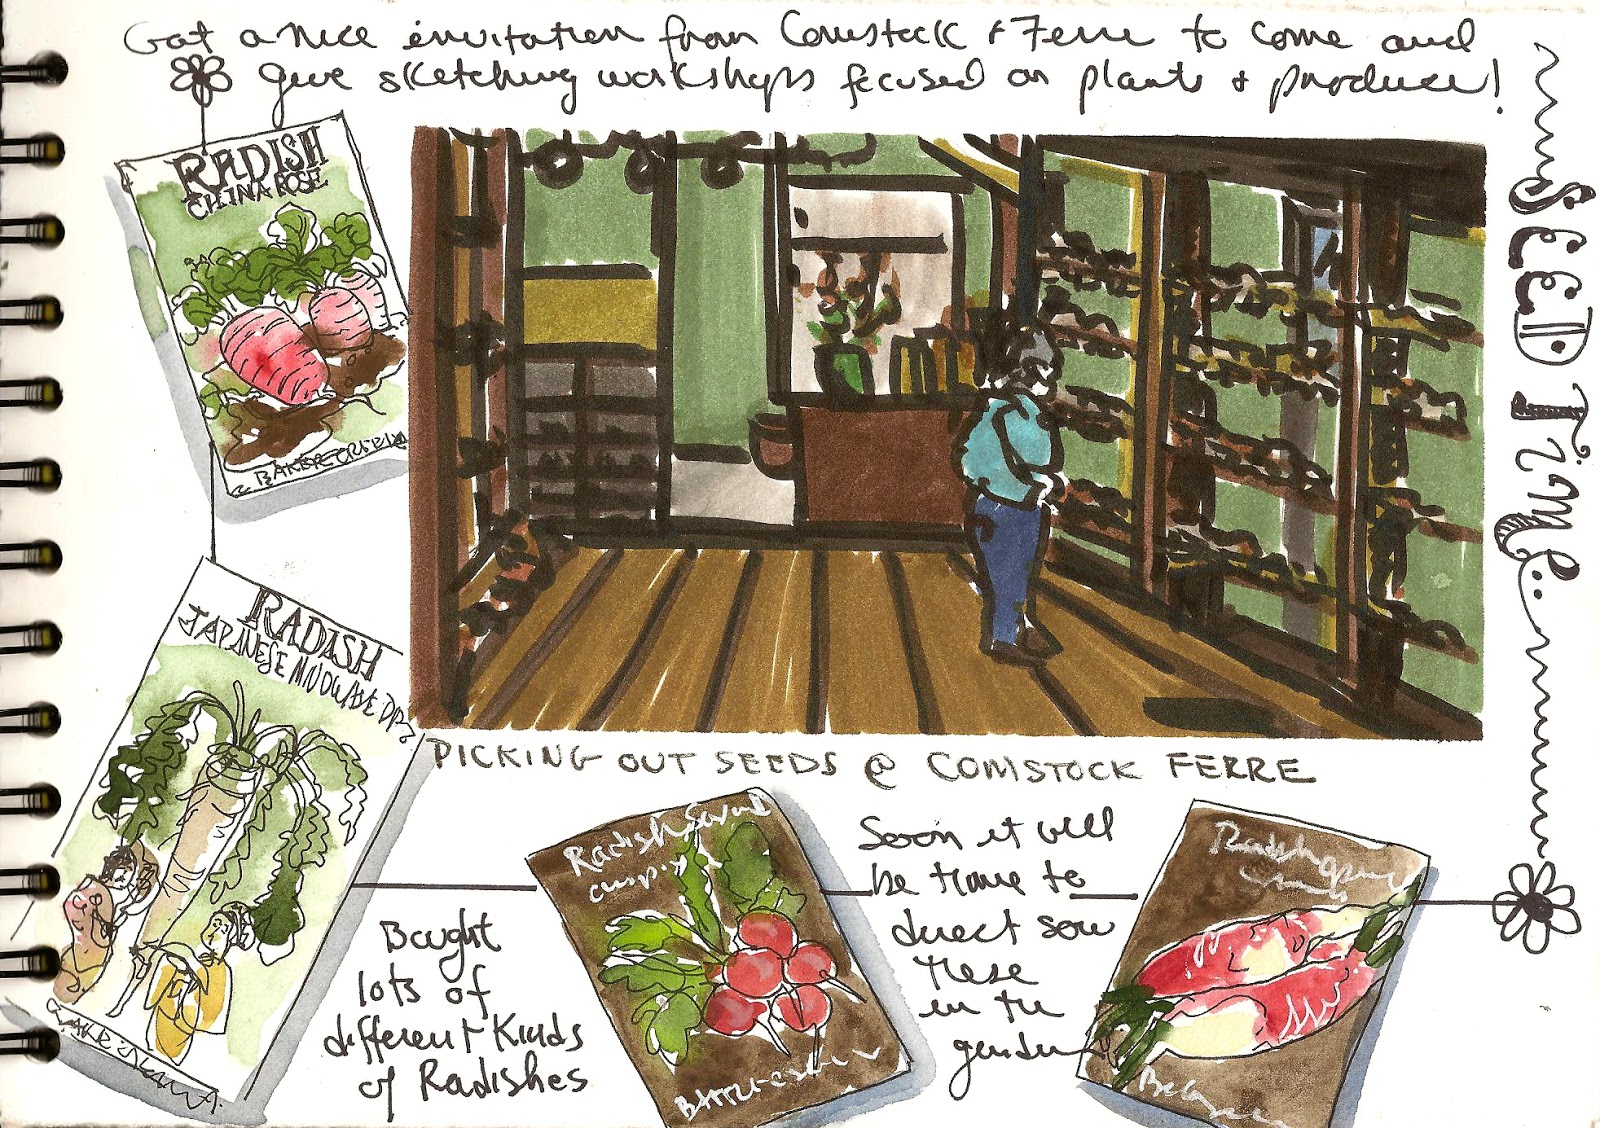 Got a nice invitation from Comstock + Ferre to come and
give sketching workshops focused on plants + produce!
SEED TIME..
RADISH
CHINA ROSE
BAKER CREEK
RADASH
JAPANESE
PICKING OUT SEEDS @ COMSTOCK FERRE
Bought
lots of
different Kinds
of Radishes
Radish
Soon it will
be time to
direct sow
these
in the
garden
Radish